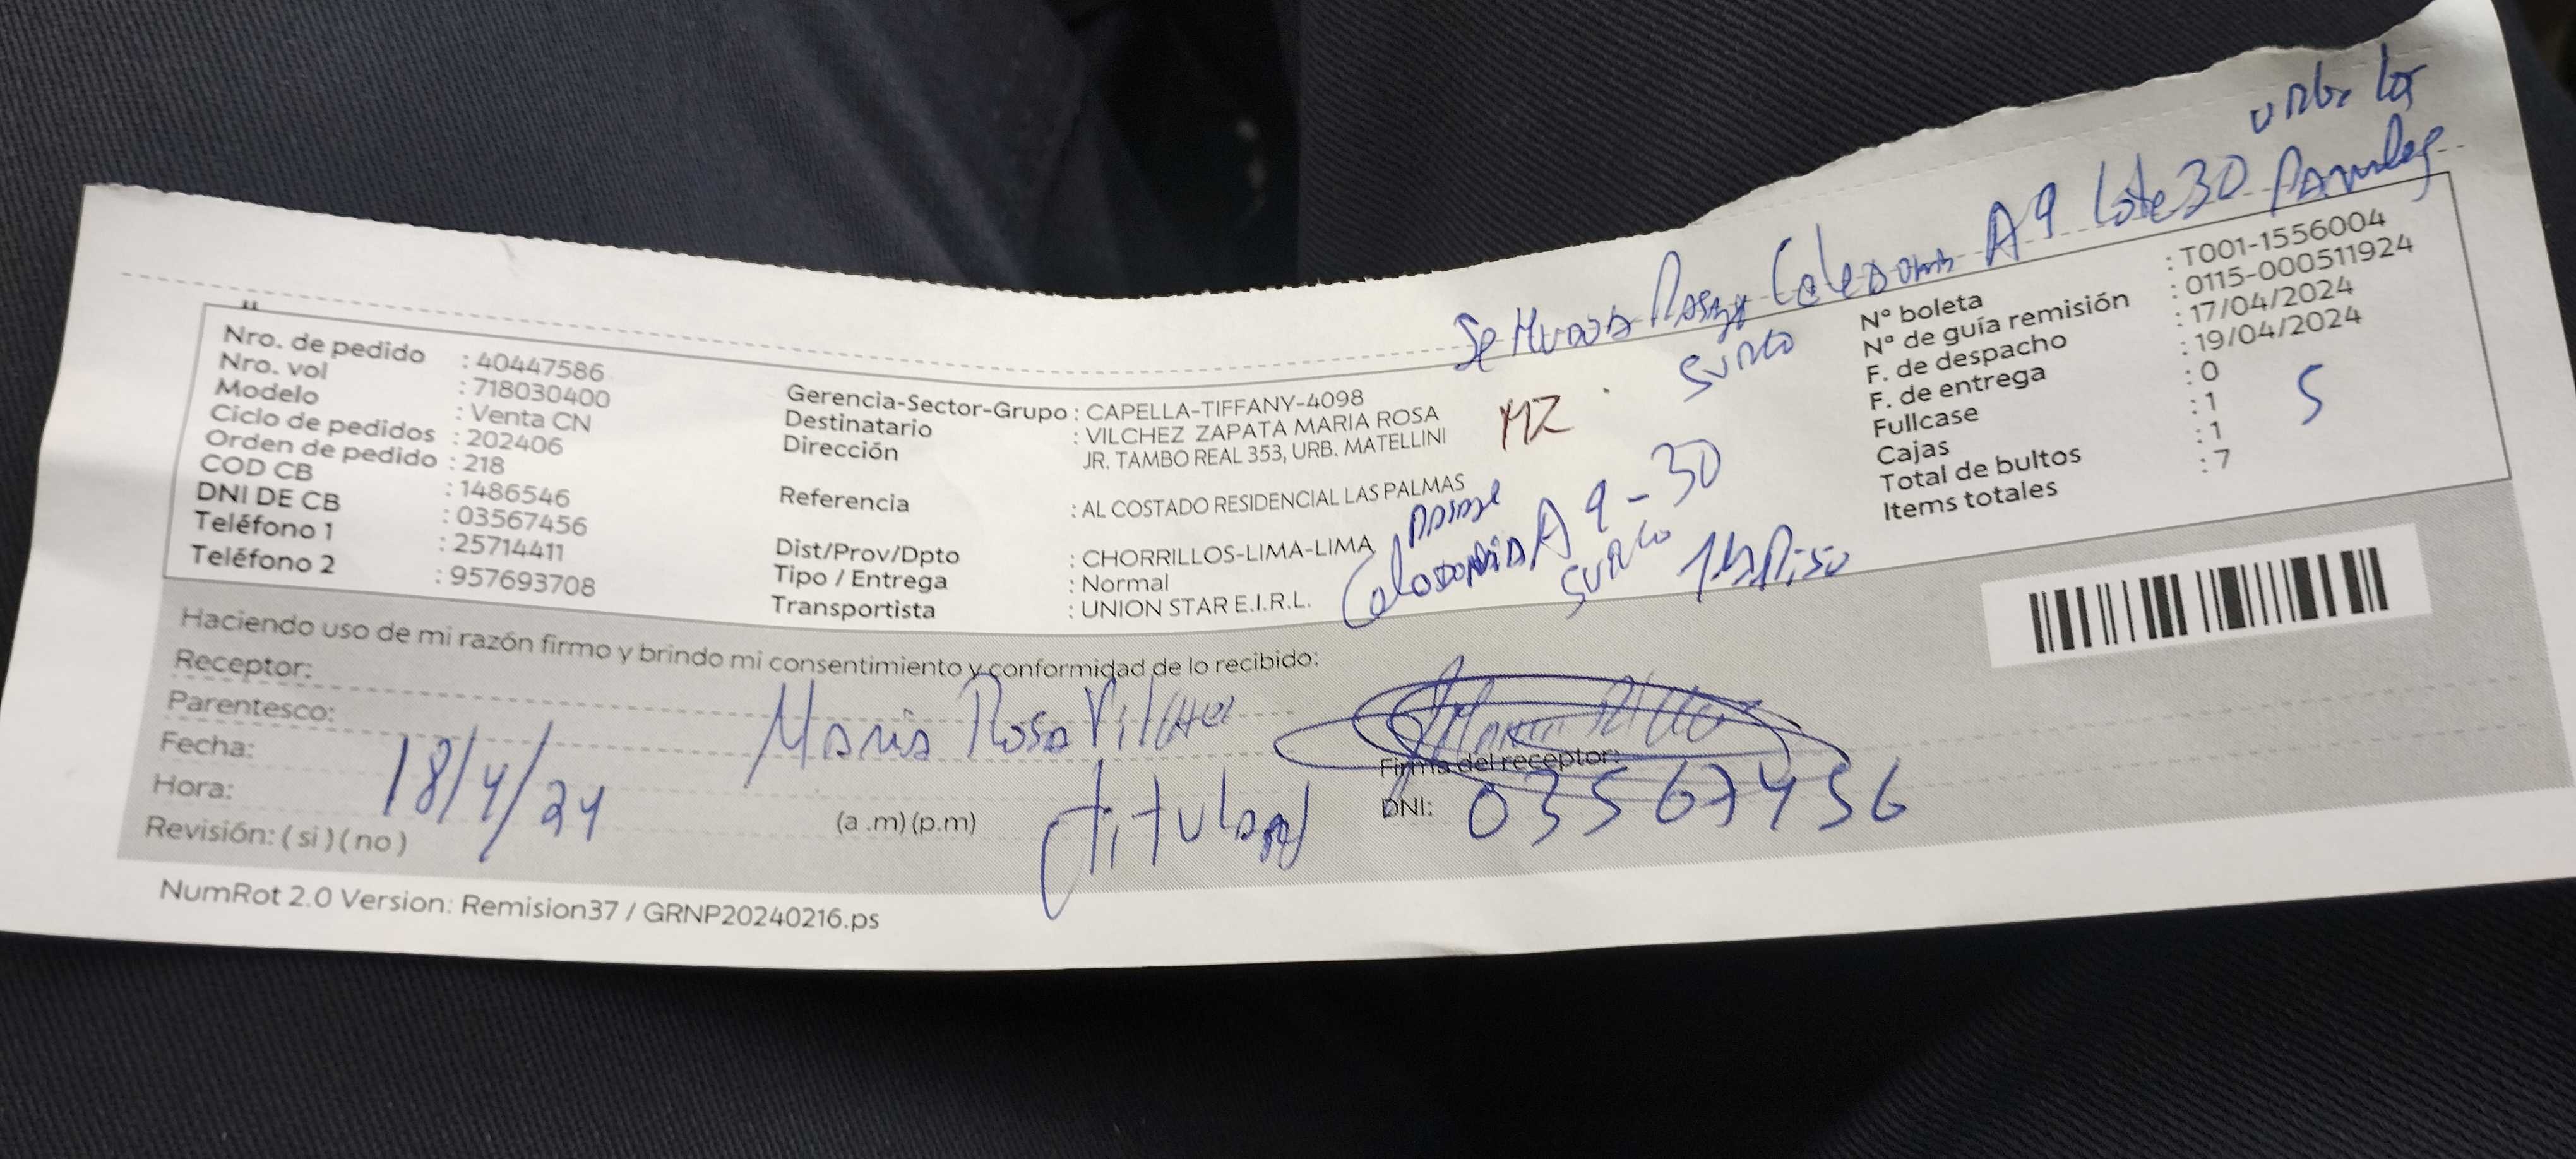 urb. los
Se Mudo a Pasaje Caledonia A9 Lote 30
Surco
Nro. de pedido : 40447586
Nro. vol : 718030400
Modelo : Venta CN
Ciclo de pedidos : 202406
Orden de pedido : 218
COD CB : 1486546
DNI DE CB : 03567456
Teléfono 1 : 25714411
Teléfono 2 : 957693708
Gerencia-Sector-Grupo : CAPELLA-TIFFANY-4098
Destinatario : VILCHEZ ZAPATA MARIA ROSA
Dirección : JR. TAMBO REAL 353, URB. MATELLINI
Referencia : AL COSTADO RESIDENCIAL LAS PALMAS
Dist/Prov/Dpto : CHORRILLOS-LIMA-LIMA
Tipo / Entrega : Normal
Transportista : UNION STAR E.I.R.L.
MZ
Pasaje
A 9 - 30
Surco
1er Piso
Nº boleta : T001-1556004
Nº de guía remisión : 0115-000511924
F. de despacho : 17/04/2024
F. de entrega : 19/04/2024
Fullcase : 0
Cajas : 1
Total de bultos : 1
Items totales : 7
S
Haciendo uso de mi razón firmo y brindo mi consentimiento y conformidad de lo recibido:
Receptor: Maria Rosa Vilchez
Parentesco: titular
Fecha: 18/4/24
Hora: (a .m) (p.m)
Revisión: ( si ) ( no )
Firma del receptor:
DNI: 03567456
NumRot 2.0 Version: Remision37 / GRNP20240216.ps